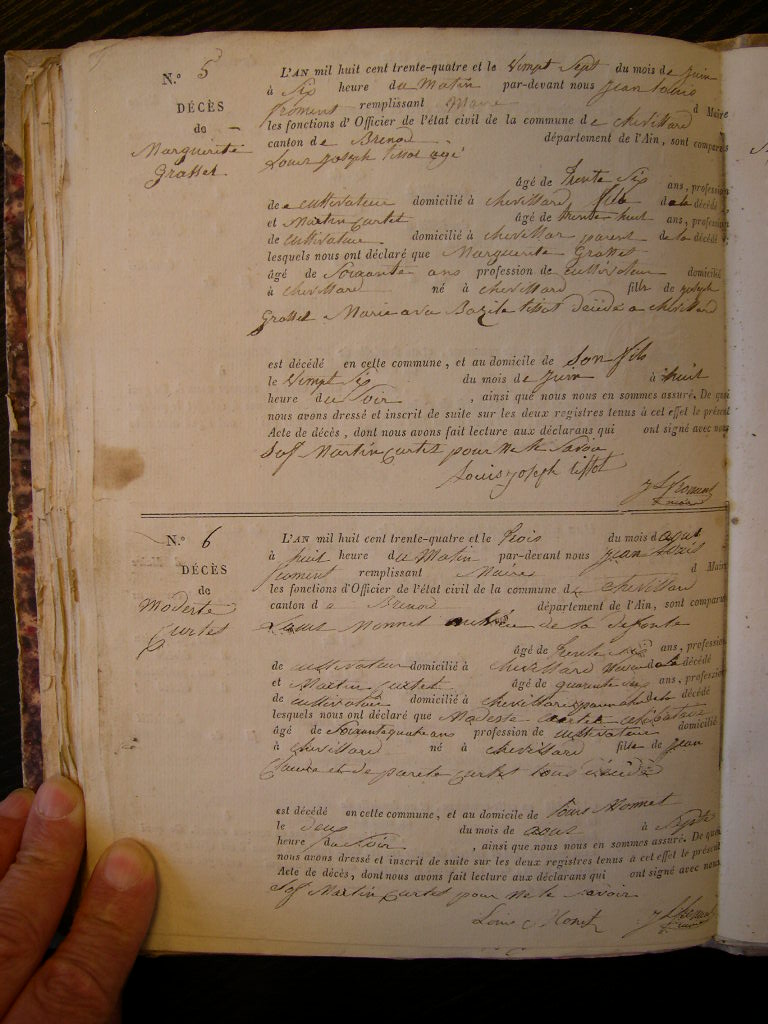 N.° 5
DÉCÈS
de
Marguerite
Grosset
L'AN mil huit cent trente-quatre et le Vingt Sept du mois de Juin
à Six heure du Matin par-devant nous Jean Louis
froment remplissant Maire d Maire
les fonctions d'Officier de l'état civil de la commune de chevillard
canton de Brenod département de l'Ain, sont comparus
Louis joseph tissot agé
âgé de Trente Six ans, profession
de cultivateur domicilié à chevillard fils de la décédé,
et Martin Curtet âgé de trente huit ans, profession
de cultivateur domicilié à chevillar parent de la décédé,
lesquels nous ont déclaré que Marguerite Grosset
âgé de Soixante ans profession de cultivateur domicilié
à chevillard né à chevillard fille de joseph
Grosset Marie a Bazile tissot décédé a chevillard
est décédé en cette commune, et au domicile de Son fils
le Vingt Six du mois de Juin à huit
heure du Soir, ainsi que nous nous en sommes assuré. De quoi
nous avons dressé et inscrit de suite sur les deux registres tenus à cet effet le présent
Acte de décès, dont nous avons fait lecture aux déclarans qui ont signé avec nous
Sof Martin Curtet pour ne le Savoir
Louis joseph tissot
J L froment
maire
N.° 6
DÉCÈS
de
Modeste
Curtet
L'AN mil huit cent trente-quatre et le Trois du mois d aout
à huit heure du Matin par-devant nous Jean Louis
froment remplissant Maire d Maire
les fonctions d'Officier de l'état civil de la commune de chevillard
canton d e Brenod département de l'Ain, sont comparus
Louis Monnet de la
âgé de Trente Six ans, profession
de cultivateur domicilié à chevillard de la décédé
et Martin Curtet âgé de quarante Six ans, profession
de cultivateur domicilié à chevillard de la décédé
lesquels nous ont déclaré que Modeste Curtet
âgé de Soixante quatre ans profession de cultivateur domicilié
à chevillard né à chevillard fille de Jean
Claude et de Curtet tous décédé
est décédé en cette commune, et au domicile de Louis Monnet
le deux du mois de aout à Septe
heure du Soir, ainsi que nous nous en sommes assuré. De quoi
nous avons dressé et inscrit de suite sur les deux registres tenus à cet effet le présent
Acte de décès, dont nous avons fait lecture aux déclarans qui ont signé avec nous
Sof Martin Curtet pour ne le Savoir
Louis Monet
J L froment
maire